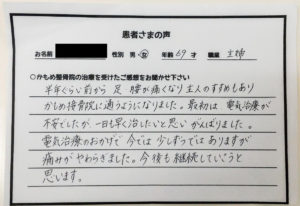 患者さまの声
お名前 性別 男・女 年齢 69才 職業 主婦
○かもめ整骨院の治療を受けたご感想をお聞かせ下さい
半年くらい前から 足、腰が痛くなり主人のすすめもあり
かもめ接骨院に通うようになりました。最初は 電気治療が
不安でしたが、一日も早く治したいと思いがんばりました。
電気治療のおかげで 今では 少しずつではありますが
痛みがやわらぎました。今後も継続していこうと
思います。